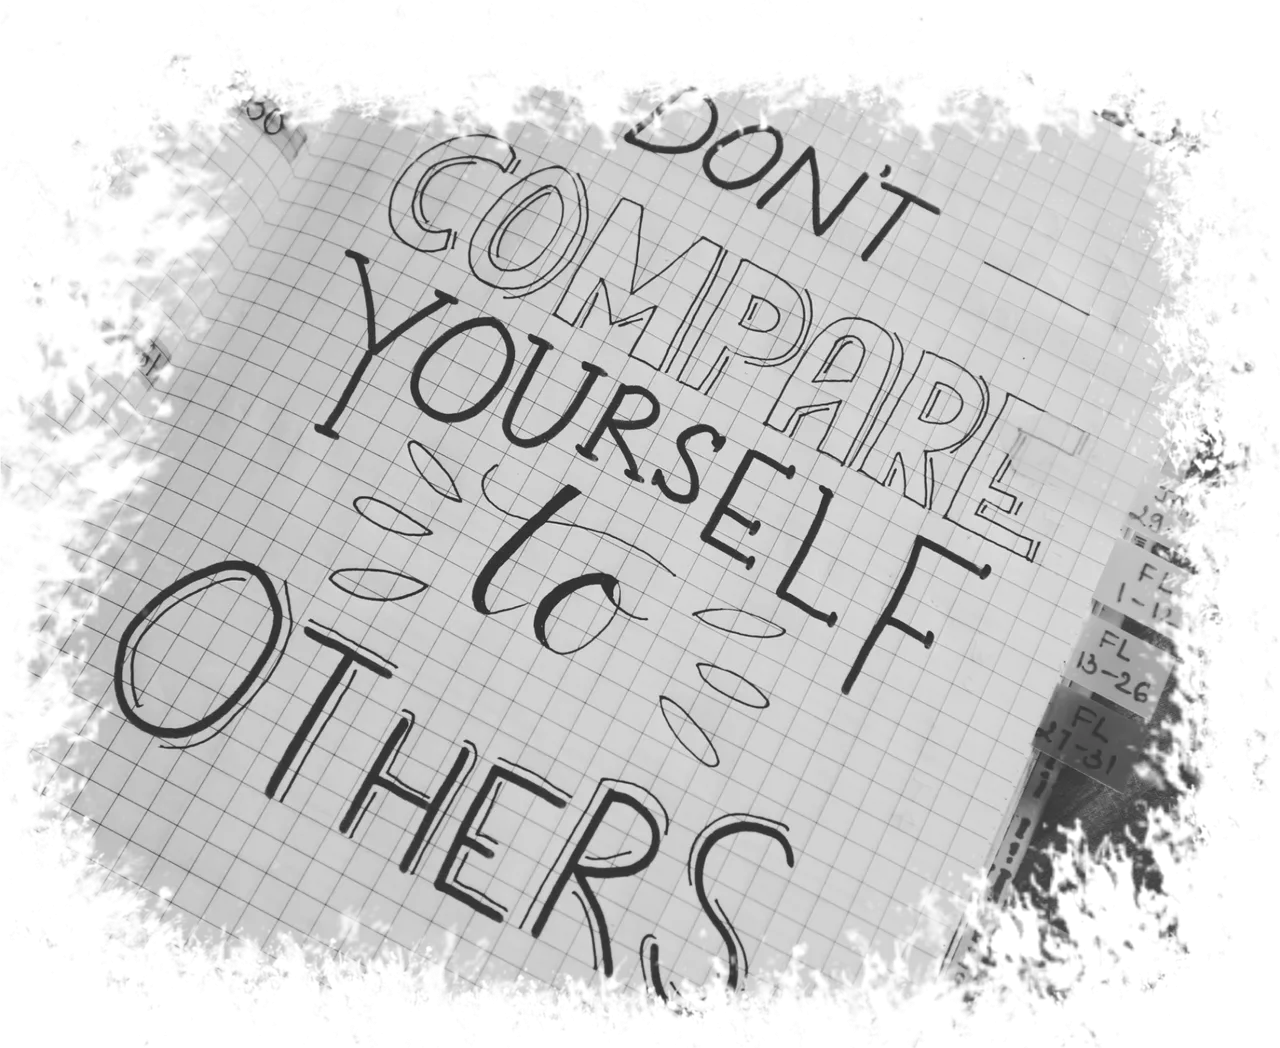 30
DON'T
COMPARE
YOURSELF
to
OTHERS
29
FL
1-12
FL
13-26
FL
27-31